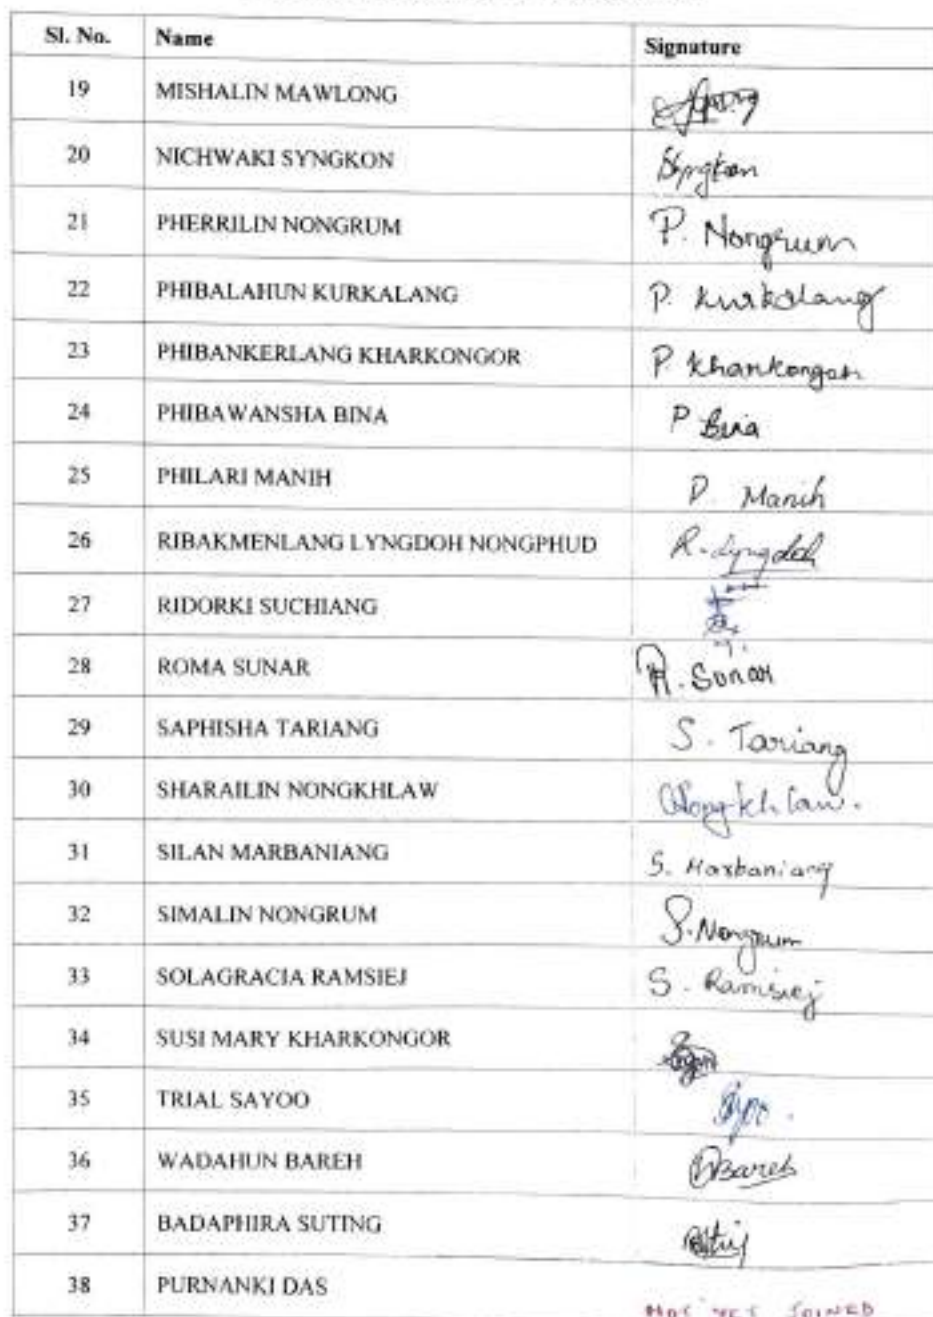 Sl. No. Name Signature
19 MISHALIN MAWLONG
20 NICHWAKI SYNGKON Syngkon
21 PHERRILIN NONGRUM P. Nongrum
22 PHIBALAHUN KURKALANG P. Kurkalang
23 PHIBANKERLANG KHARKONGOR P. Kharkongor
24 PHIBAWANSHA BINA P Bina
25 PHILARI MANIH P. Manih
26 RIBAKMENLANG LYNGDOH NONGPHUD R. Lyngdoh
27 RIDORKI SUCHIANG
28 ROMA SUNAR R. Sunar
29 SAPHISHA TARIANG S. Tariang
30 SHARAILIN NONGKHLAW Nongkhlaw.
31 SILAN MARBANIANG S. Marbaniang
32 SIMALIN NONGRUM S. Nongrum
33 SOLAGRACIA RAMSIEJ S. Ramsiej
34 SUSI MARY KHARKONGOR
35 TRIAL SAYOO
36 WADAHUN BAREH Bareh
37 BADAPHIRA SUTING
38 PURNANKI DAS YET JOINED